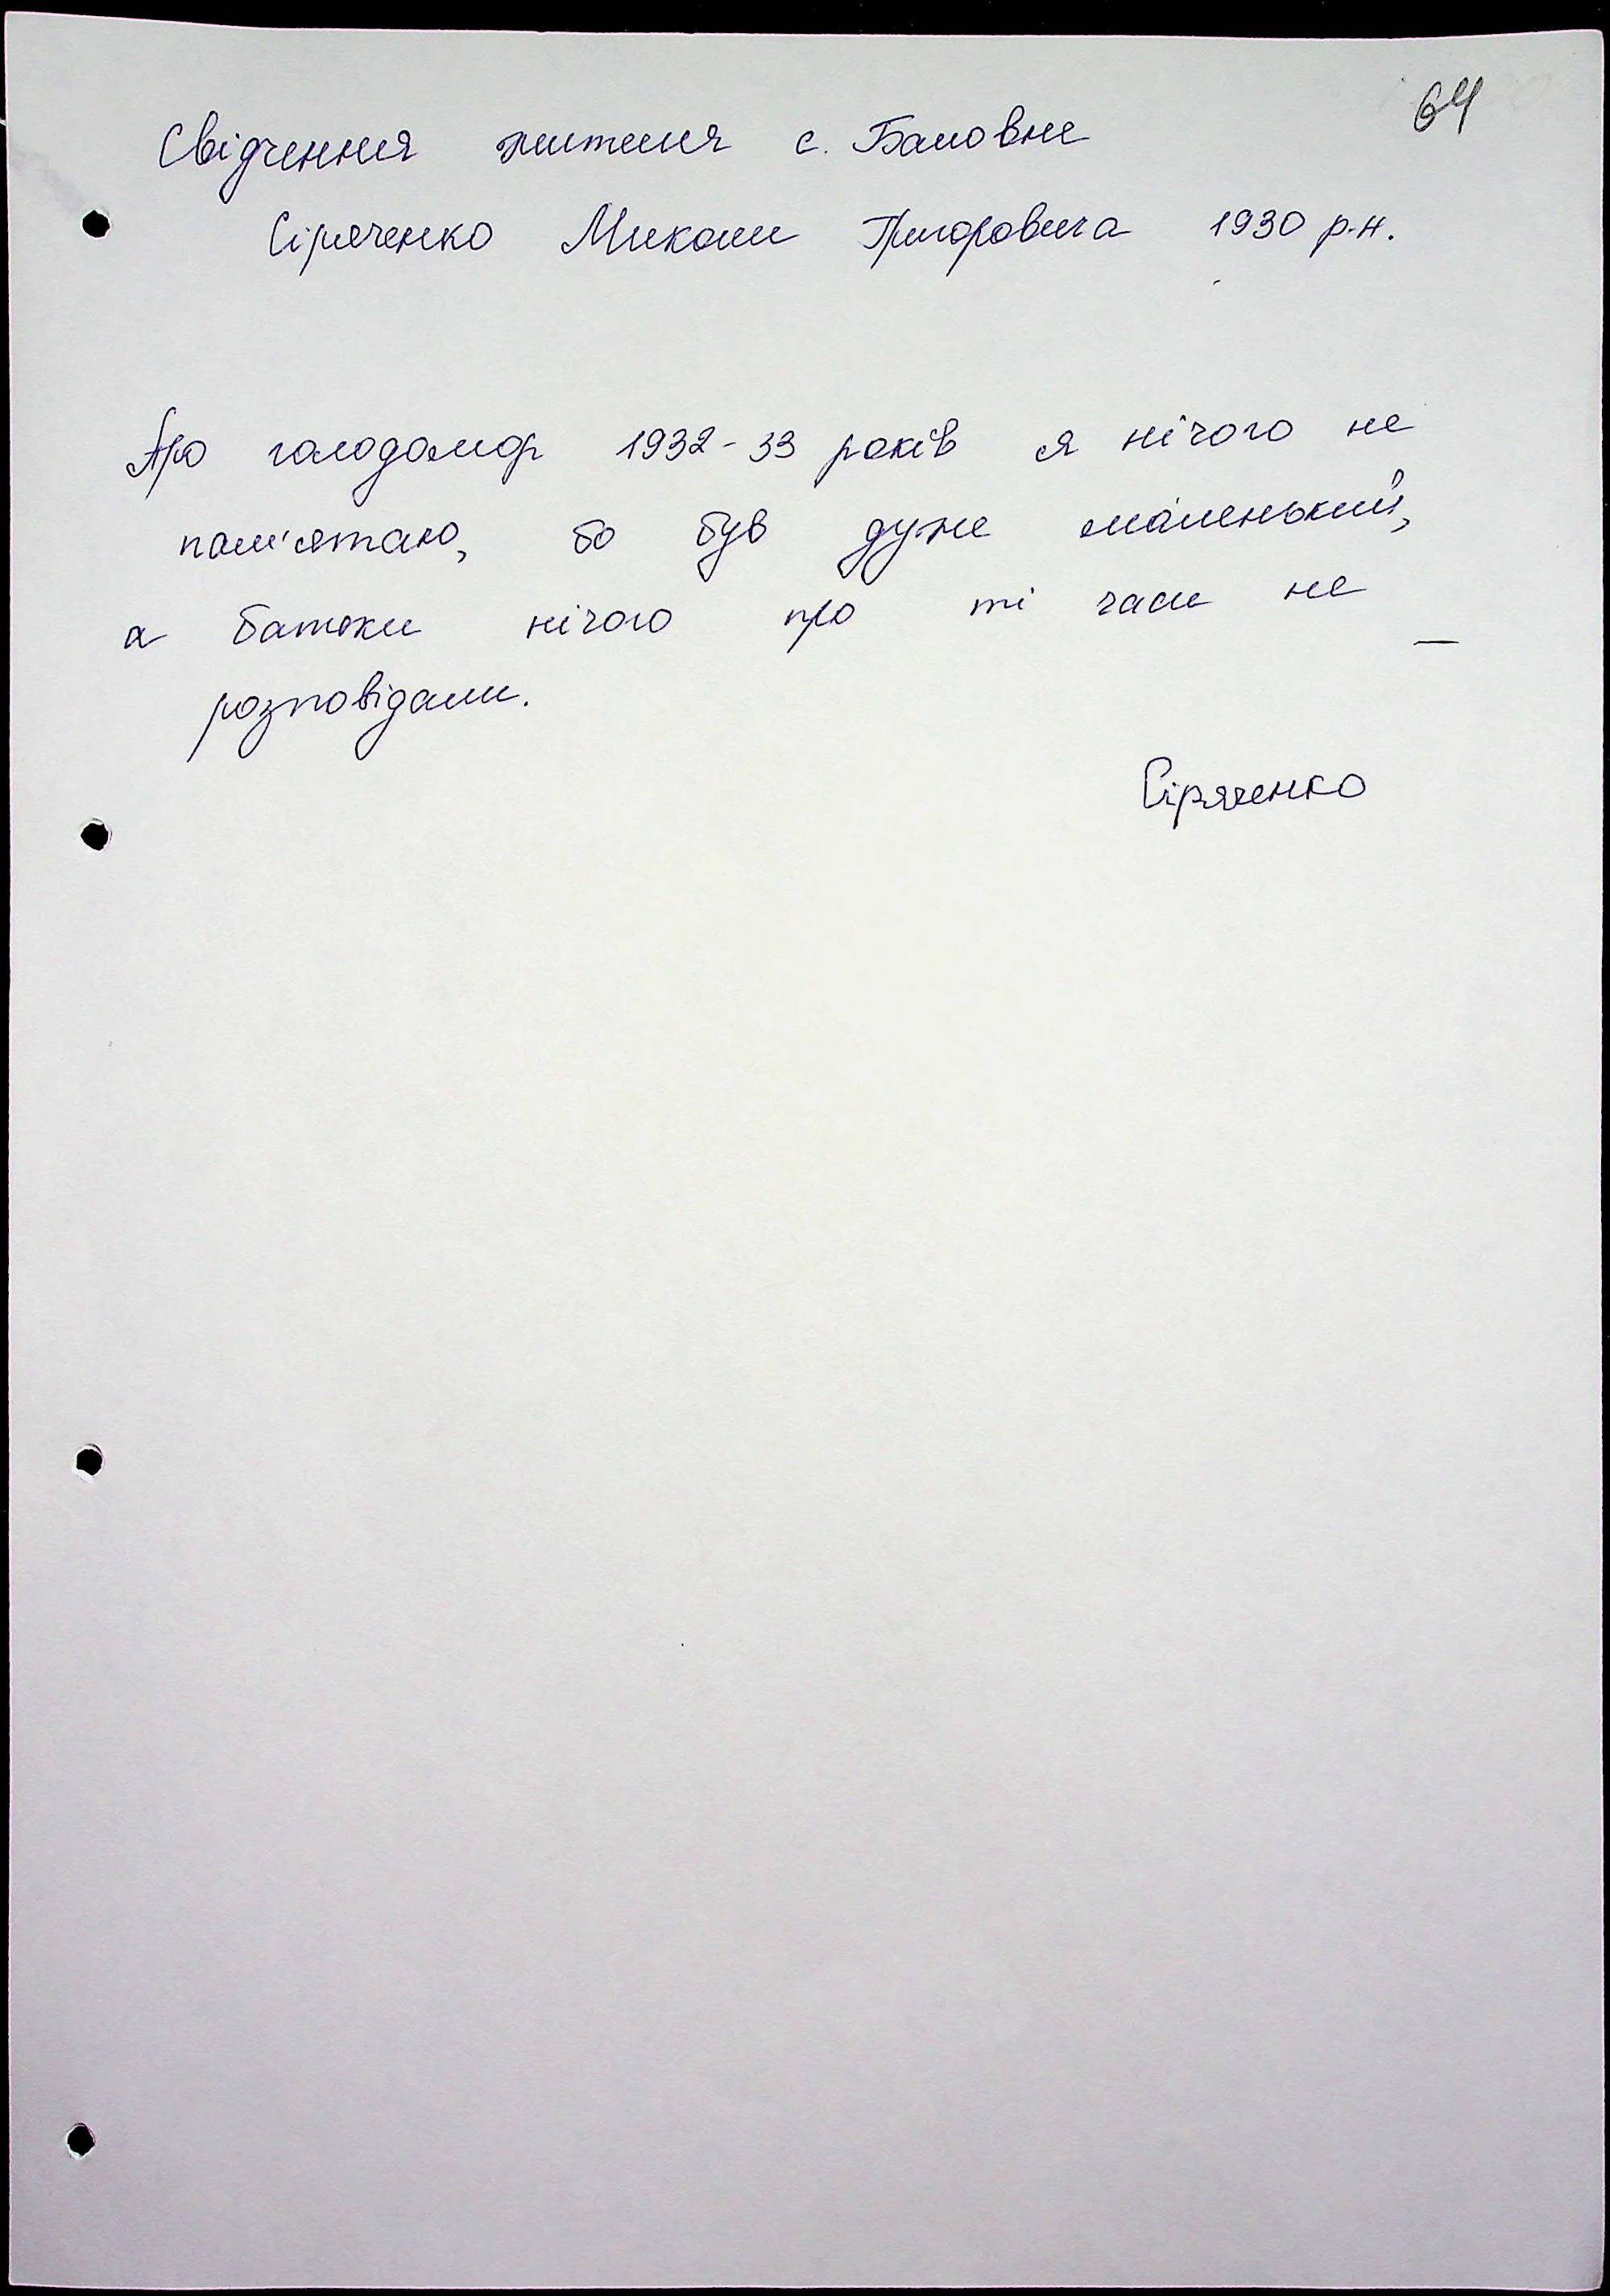 64
Свідчення жителя с. Баловне
Сіряченко Миколи Григоровича 1930 р.н.
Про голодомор 1932-33 років я нічого не
пам'ятаю, бо був дуже маленький,
а батьки нічого про ті часи не
розповідали.
Сіряченко